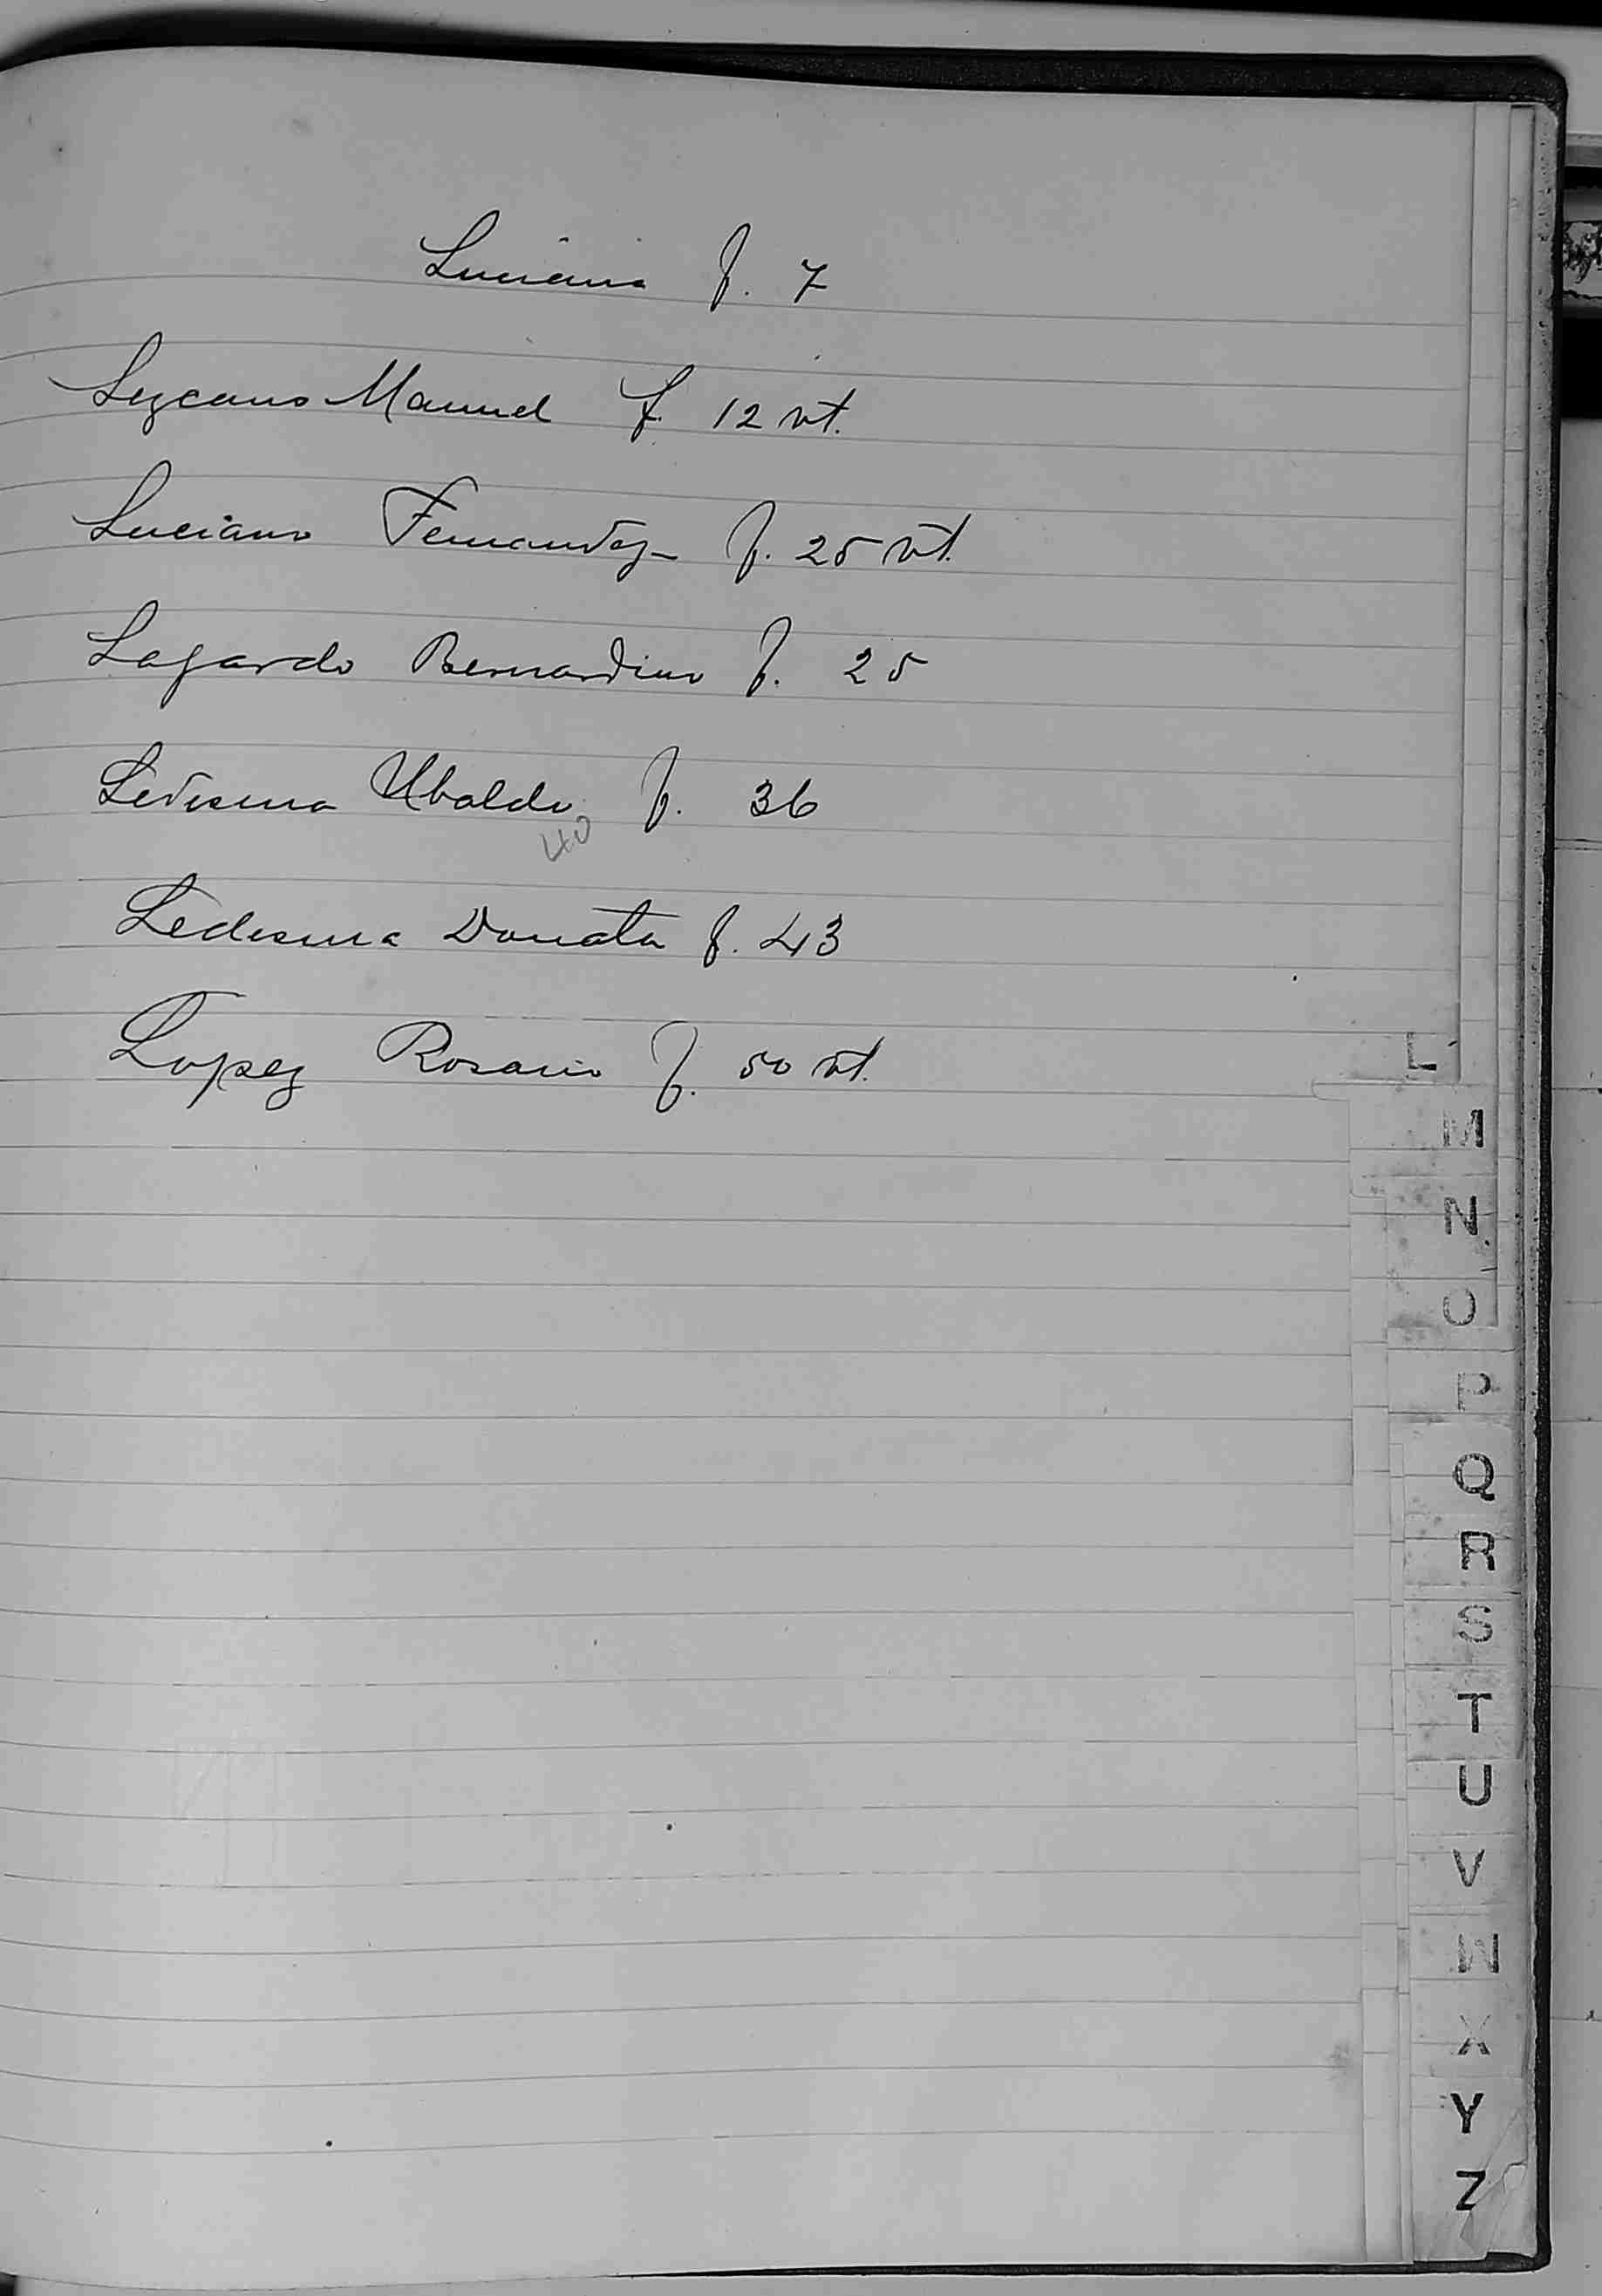 Luciana f. 7
Lezcano Manuel f. 12 vt.
Luciano Fernandez f. 25 vt.
Lagardo Bernardino f. 25
Ledesma Ubaldo f. 36
40
Ledesma Donata f. 43
Lopez Rosario f. 50 vt.
L
M
N
O
P
Q
R
S
T
U
V
W
X
Y
Z